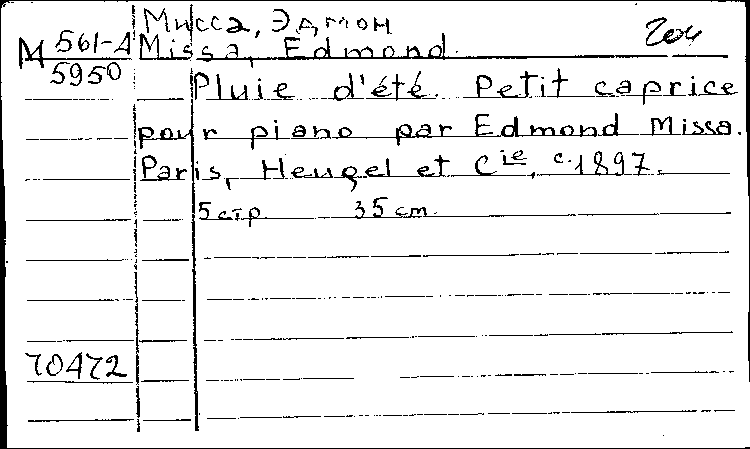 Мисса, Эдмон
М 561-А Missa, Edmond. 204
5950
Pluie d'été. Petit caprice
pour piano par Edmond Missa.
Paris, Heugel et Cie, c. 1897.
5 стр. 35 cm.
70472